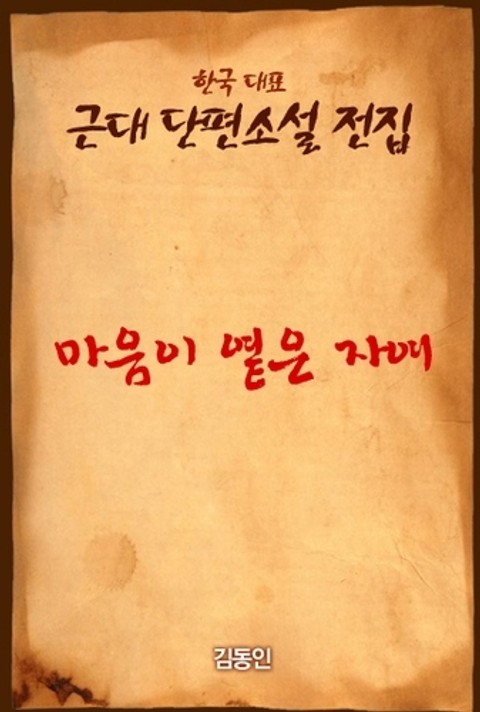 한국 대표
근대 단편소설 전집
마음이 옅은 자여
김동인